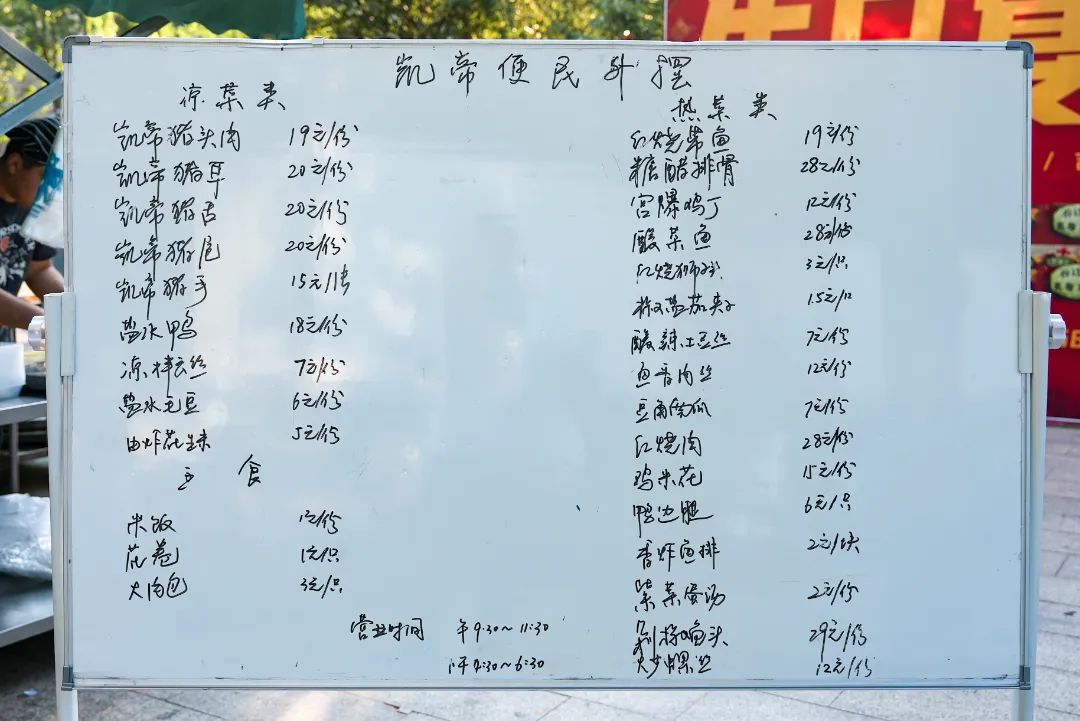 凯帝便民外摆
凉菜类
凯帝猪头肉 19元/份
凯帝猪耳 20元/份
凯帝猪舌 20元/份
凯帝猪尾 20元/份
凯帝猪手 15元/
盐水鸭 18元/份
凉拌云丝 7元/份
盐水毛豆 6元/份
油炸花生米 5元/份
主食
米饭 1元/份
花卷 1元/只
大肉包 3元/只
热菜类
红烧带鱼 19元/份
糖醋排骨 28元/份
宫爆鸡丁 12元/份
酸菜鱼 28元/份
红烧狮子头 3元/只
茄夹子 15元/
酸辣土豆丝 7元/份
鱼香肉丝 12元/份
豆角南瓜 7元/份
红烧肉 28元/份
鸡米花 15元/份
鸭边腿 6元/只
香炸鱼排 2元/块
紫菜蛋汤 2元/份
剁椒鱼头 29元/份
炒螺丝 12元/份
营业时间 午9:30~11:30
下午4:30~6:30